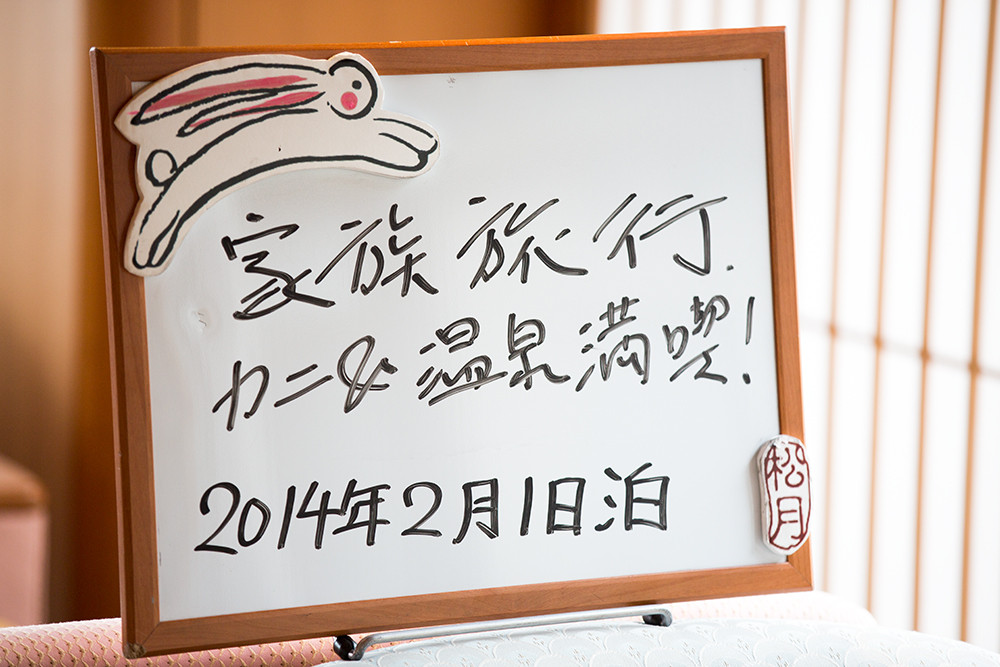 家族旅行.
カニ&温泉満喫!
2014年2月1日泊
松月